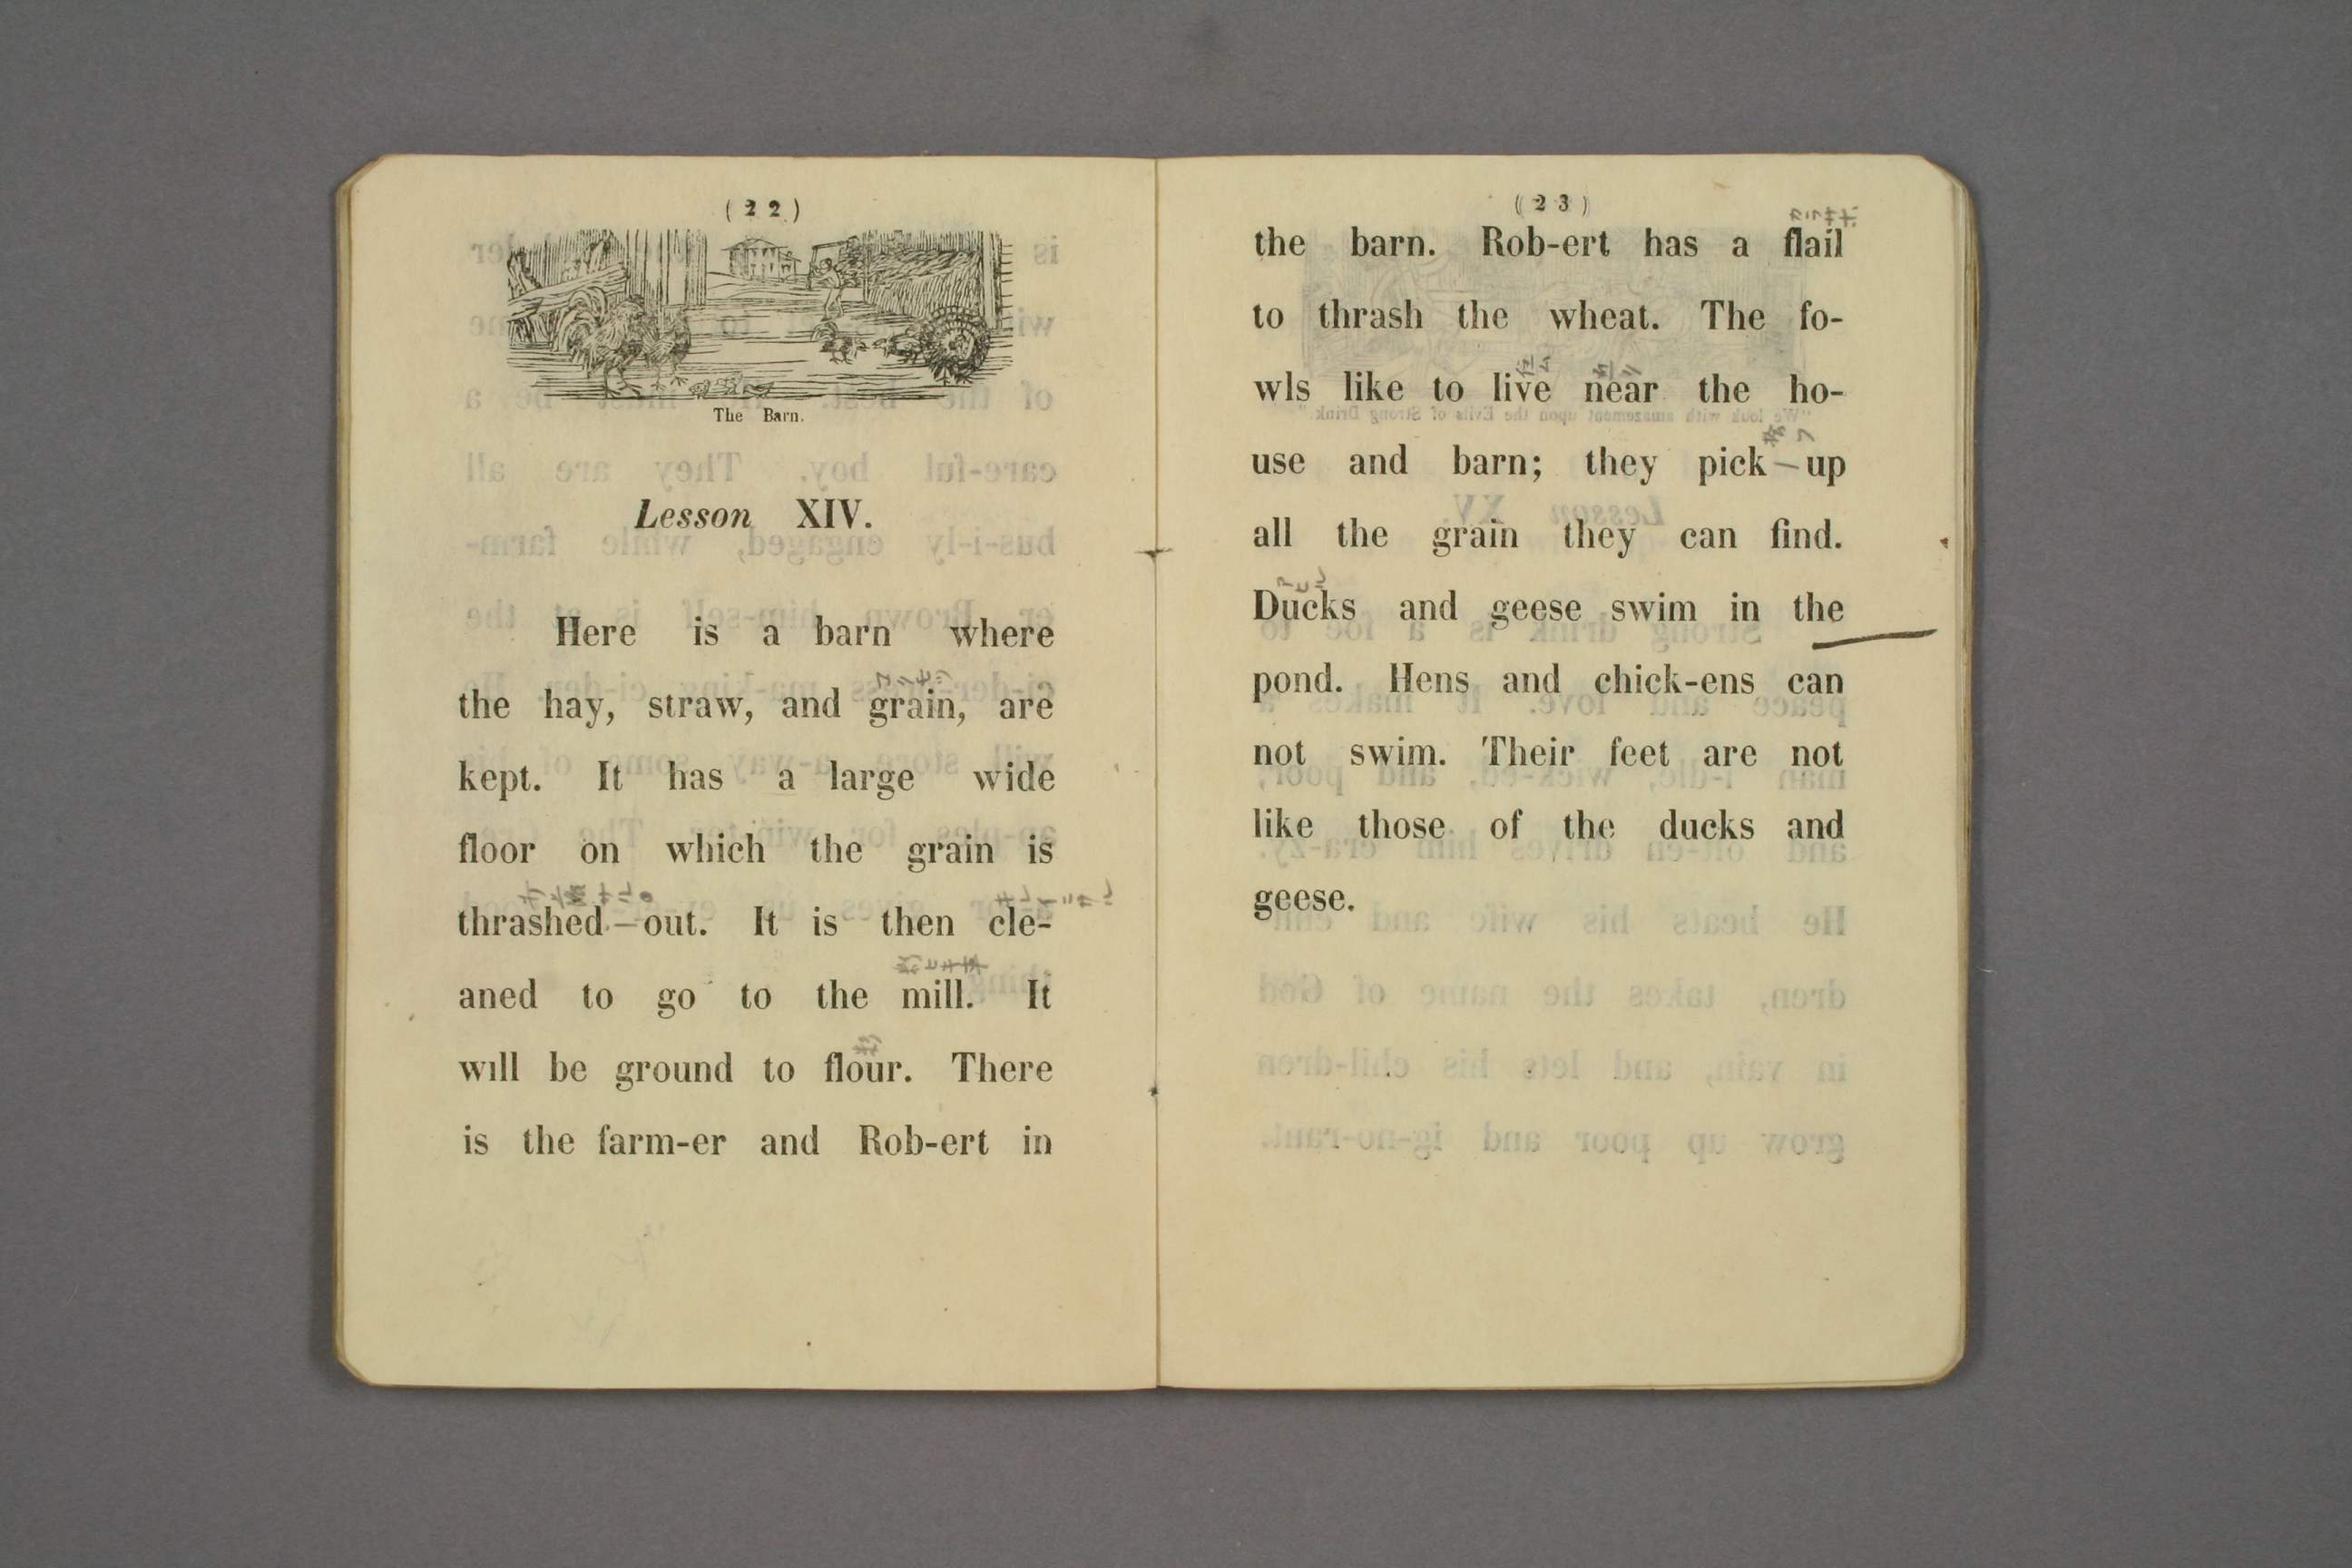 (22)
The Barn.
Lesson XIV.
Here is a barn where
the hay, straw, and grain, are
kept. It has a large wide
floor on which the grain is
thrashed–out. It is then cle-
aned to go to the mill. It
will be ground to flour. There
is the farm-er and Rob-ert in
(23)
the barn. Rob-ert has a flail
to thrash the wheat. The fo-
wls like to live near the ho-
use and barn; they pick–up
all the grain they can find.
Ducks and geese swim in the
pond. Hens and chick-ens can
not swim. Their feet are not
like those of the ducks and
geese.